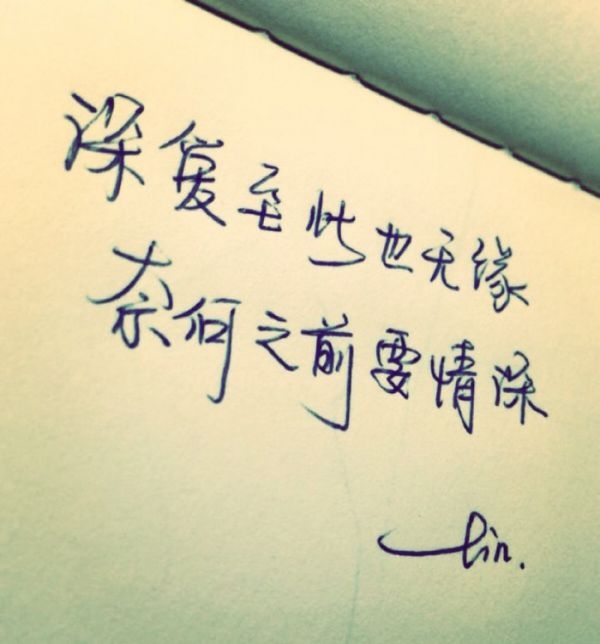 深爱至此也无缘
奈何之前要情深
lin.